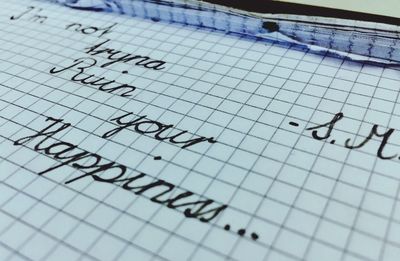 I'm not
tryna
Ruin
your
Happiness...
- S.M.